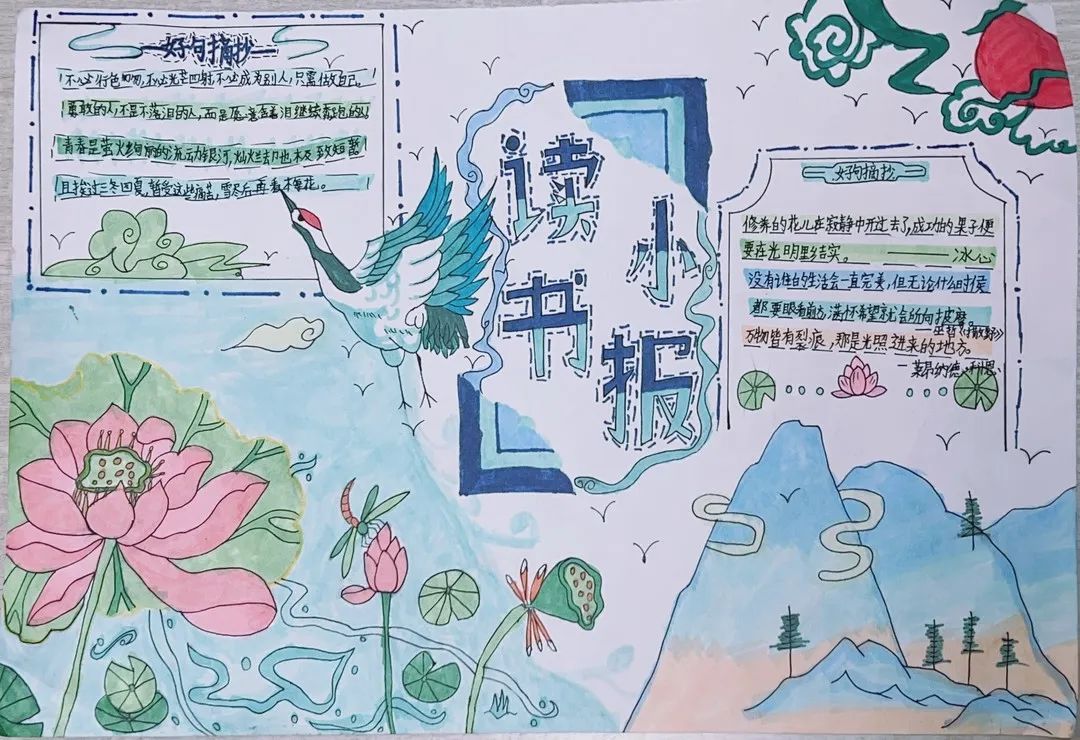 好句摘抄
不必行色匆匆,不必光芒四射,不必成为别人,只需做自己。
勇敢的人,不是不落泪的人,而是愿意含着泪继续奔跑的人
青春是萤火绚丽的流动银河,灿烂却也不及致短暂
且挨过三冬四夏,暂受这些痛苦,雪尽后再看梅花。
读书
小报
好句摘抄
修养的花儿在寂静中开过去了,成功的果子便
要在光明里结实。——冰心
没有谁的生活会一直完美,但无论什么时候
都要眼看前方,满怀希望就会所向披靡。
万物皆有裂痕,那是光照进来的地方。
—莱昂纳德·科恩